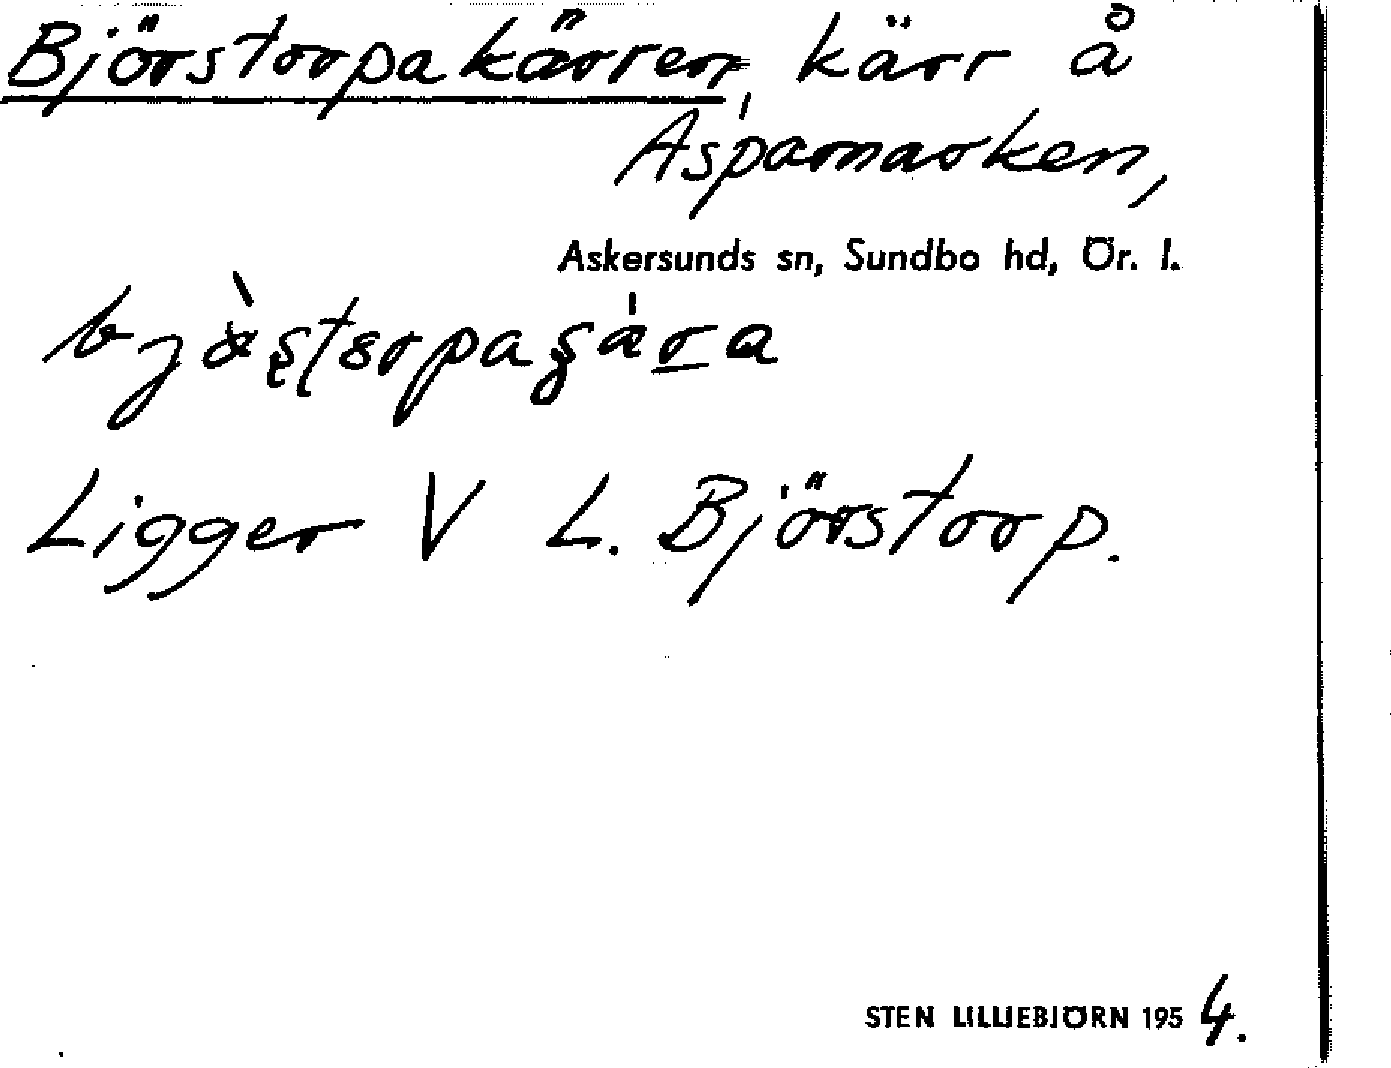 Björstorpakärren, kärr å
Aspamarken,
Askersunds sn, Sundbo hd, Ör. l.
Ligger V L. Björstorp.
STEN LILLIEBJÖRN 1954.